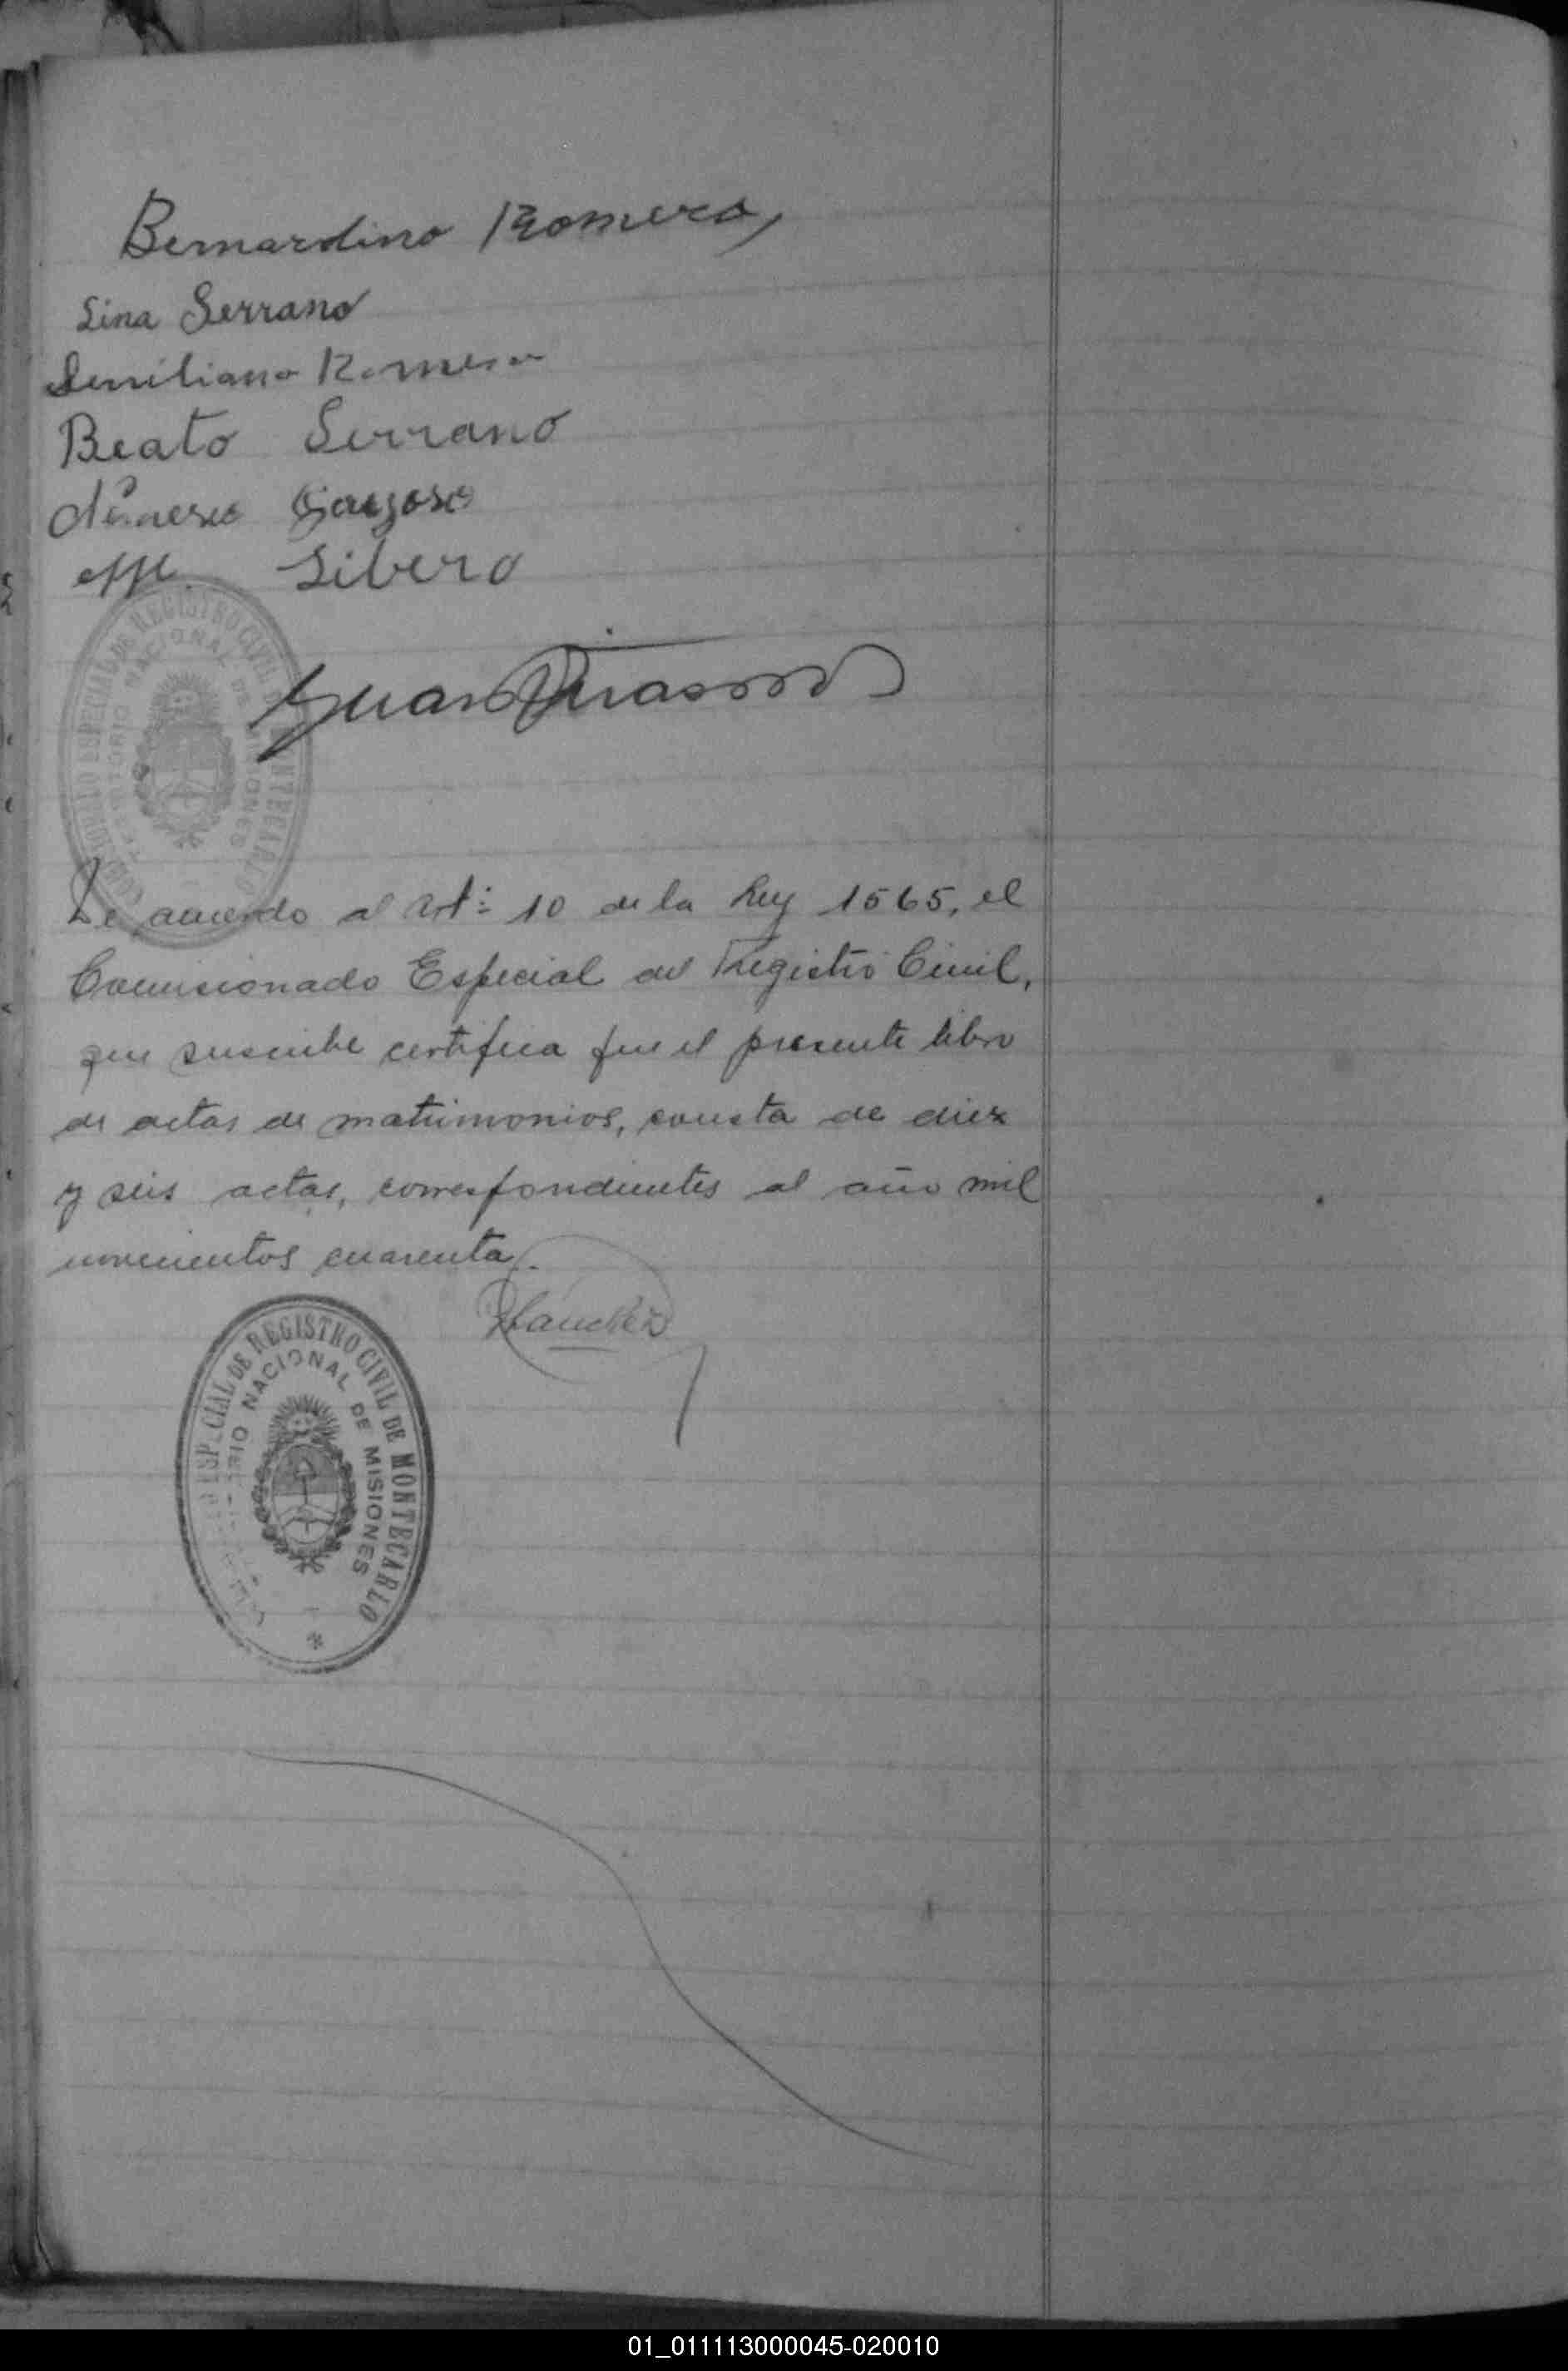 Bernardino Romero
Lina Serrano
Emiliano Romero
Beato Serrano
Gayoso
Libero
Juan
COMISIONADO ESPECIAL DE REGISTRO CIVIL DE MONTECARLO
TERRITORIO NACIONAL DE MISIONES
De acuerdo al Art: 10 de la Ley 1565, el
Comisionado Especial del Registro Civil,
que suscribe certifica que el presente libro
de actas de matrimonios, consta de diez
y seis actas, correspondientes al año mil
novecientos cuarenta.
ESPECIAL DE REGISTRO CIVIL DE MONTECARLO
NACIONAL DE MISIONES
01_011113000045-020010